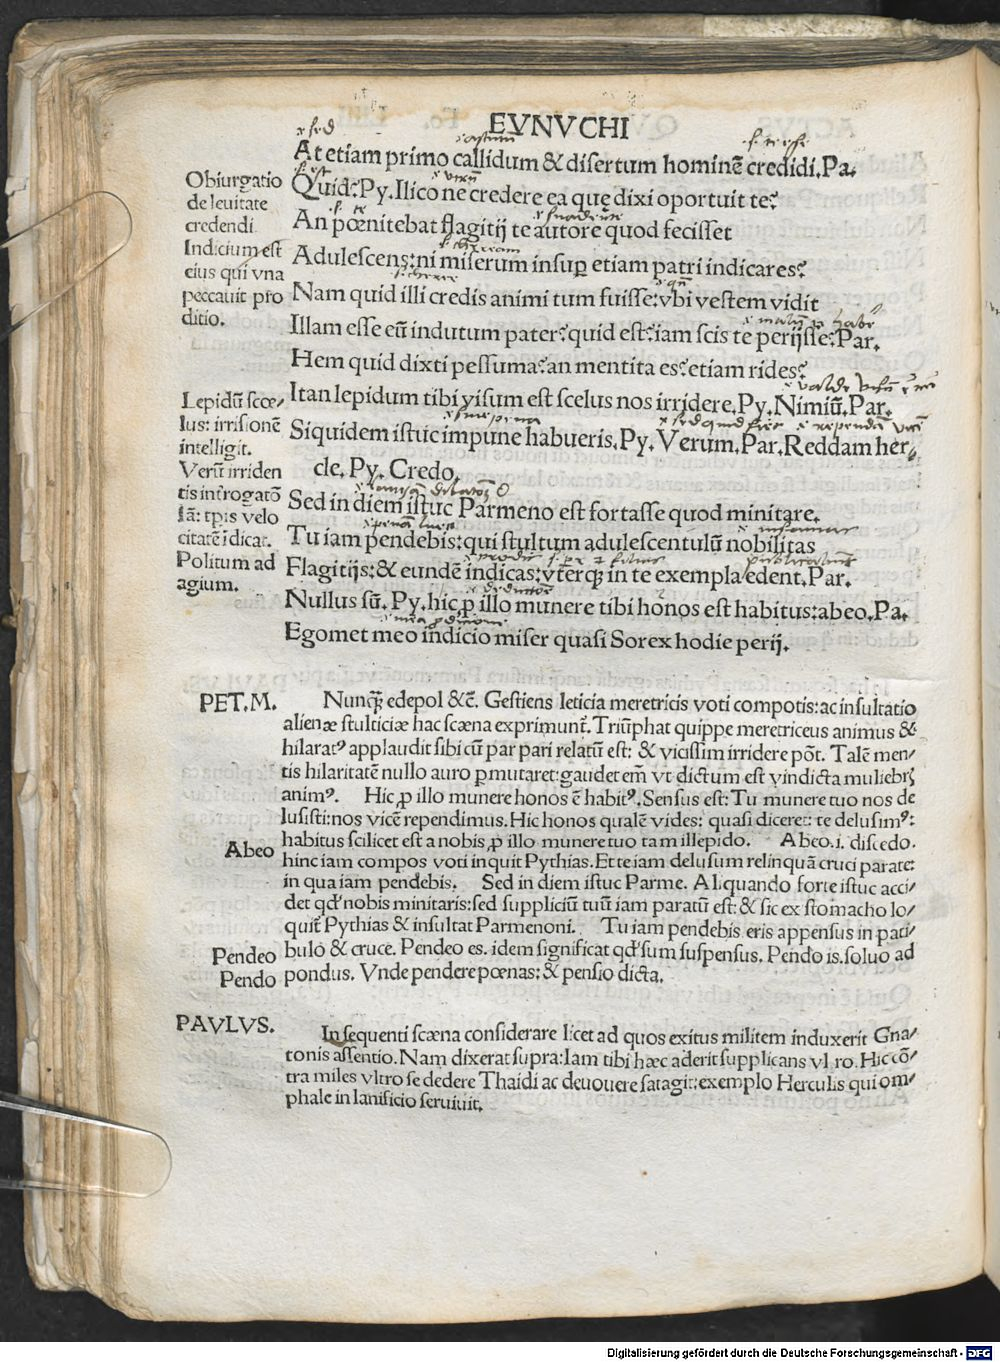 EVNVCHI
At etiam primo callidum & disertum hominē credidi. Pa.
Quid? Py. Ilico ne credere ea quę dixi oportuit te?
An pœnitebat flagitij te autore quod fecisset
Adulescens: ni miserum insuꝑ etiam patri indicares?
Nam quid illi credis animi tum fuisse: vbi vestem vidit
Illam esse eū indutum pater? quid est? iam scis te perijsse? Par.
Hem quid dixti pessuma? an mentita es? etiam rides?
Itan lepidum tibi visum est scelus nos irridere. Py. Nimiū. Par.
Siquidem istuc impune habueris. Py. Verum. Par. Reddam her⸗
cle. Py. Credo.
Sed in diem istuc Parmeno est fortasse quod minitare.
Tu iam pendebis: qui stultum adulescentulū nobilitas
Flagitijs: & eundē indicas: vterq; in te exempla edent. Par.
Nullus sū. Py. hic ꝓ illo munere tibi honos est habitus: abeo. Pa.
Egomet meo indicio miser quasi Sorex hodie perij.
Obiurgatio
de leuitate
credendi
Indicium est
eius qui vna
peccauit pro
ditio.
Lepidū scœ⸗
lus: irrisionē
intelligit.
Verū irriden
tis introgatō
Iā: tpis velo
citatē īdicat.
Politum ad
agium.
PET. M.
Nunq̄; edepol &c̄. Gestiens leticia meretricis voti compotis: ac insultatio
alienæ stulticiæ hac scæna exprimunt̄. Triūphat quippe meretriceus animus &
hilarat⁹ applaudit sibi cū par pari relatū est: & vicissim irridere pōt. Talē men⸗
tis hilaritatē nullo auro ꝑmutaret: gaudet em̄ vt dictum est vindicta muliebrꝫ
anim⁹. Hic ꝓ illo munere honos ē habit⁹. Sensus est: Tu munere tuo nos de
lusisti: nos vicē rependimus. Hic honos qualē vides: quasi diceret: te delusim⁹:
habitus scilicet est a nobis ꝓ illo munere tuo tam illepido. Abeo. i. discedo.
hinc iam compos voti inquit Pythias. Et te iam delusum relinquā cruci paratę:
in qua iam pendebis. Sed in diem istuc Parme. Aliquando forte istuc acci⸗
det qd' nobis minitaris: sed suppliciū tuū iam paratū est: & sic ex stomacho lo⸗
quit̄ Pythias & insultat Parmenoni. Tu iam pendebis eris appensus in pati⸗
bulo & cruce. Pendeo es. idem significat qd' sum suspensus. Pendo is. soluo ad
pondus. Vnde pendere pœnas: & pensio dicta.
Abeo
Pendeo
Pendo
PAVLVS.
In sequenti scæna considerare licet ad quos exitus militem induxerit Gna⸗
tonis assentio. Nam dixerat supra: Iam tibi hæc aderit supplicans vl ro. Hic cō⸗
tra miles vltro se dedere Thaidi ac deuouere satagit: exemplo Herculis qui om⸗
phale in lanificio seruiuit.
Digitalisierung gefördert durch die Deutsche Forschungsgemeinschaft - DFG